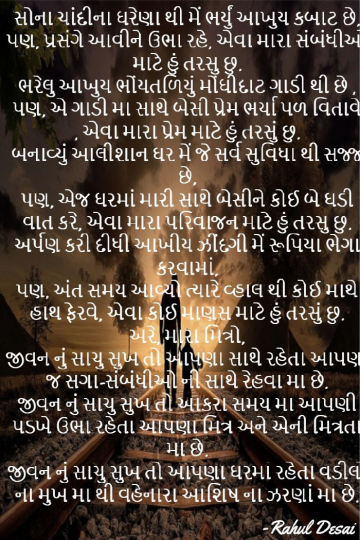 સોના ચાંદીના ઘરેણા થી મેં ભર્યું આખુય કબાટ છે,
પણ, પ્રસંગે આવીને ઉભા રહે, એવા મારા સંબંધીઓ
માટે હું તરસુ છુ.
ભરેલુ આખુય ભોંયતળિયું મોંઘીદાટ ગાડી થી છે ,
પણ, એ ગાડી મા સાથે બેસી પ્રેમ ભર્યા પળ વિતાવે
, એવા મારા પ્રેમ માટે હું તરસું છુ.
બનાવ્યું આલીશાન ઘર મેં જે સર્વ સુવિધા થી સજ્જ
છે,
પણ, એજ ઘરમાં મારી સાથે બેસીને કોઈ બે ઘડી
વાત કરે, એવા મારા પરિવાજન માટે હું તરસુ છુ.
અર્પણ કરી દીધી આખીય ઝીંદગી મેં રૂપિયા ભેગા
કરવામાં,
પણ, અંત સમય આવ્યો ત્યારે વ્હાલ થી કોઈ માથે
હાથ ફેરવે, એવા કોઈ માણસ માટે હું તરસું છુ.
અરે, મારા મિત્રો,
જીવન નું સાચુ સુખ તો આપણા સાથે રહેતા આપણા
જ સગા-સંબંધીઓ ની સાથે રેહવા મા છે.
જીવન નું સાચુ સુખ તો આકરા સમય મા આપણી
પડખે ઉભા રહેતા આપણા મિત્ર અને એની મિત્રતા
મા છે.
જીવન નું સાચુ સુખ તો આપણા ઘરમાં રહેતા વડીલો
ના મુખ મા થી વહેનારા આશિષ ના ઝરણાં મા છે.
- Rahul Desai